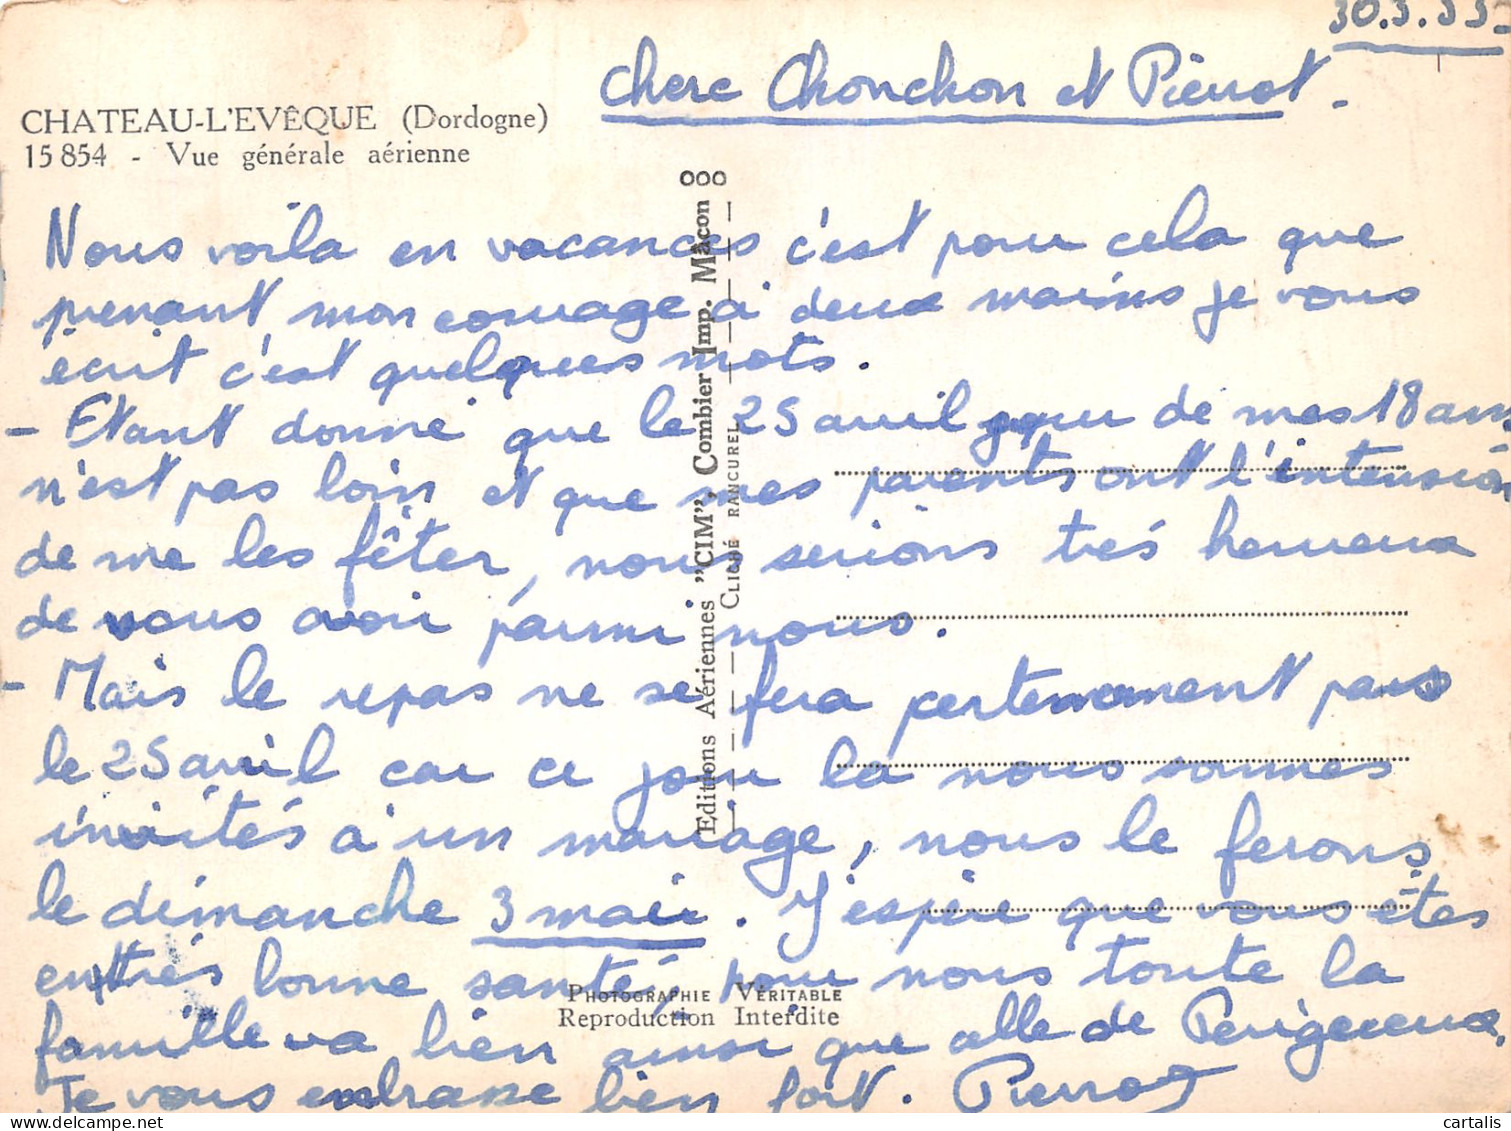 30.3.53
Chere Chonchon et Pierrot.
CHATEAU-L'EVÊQUE (Dordogne)
15 854 - Vue générale aérienne
Nous voila en vacances c'est pour cela que
prenant mon courage à deux mains je vous
écrit c'est quelques mots.
- Etant donné que le 25 avril jour de mes 18 ans
n'est pas loin et que mes parents ont l'intension
de me les fêter, nous serions très heureux
de vous avoir parmi nous.
- Mais le repas ne se fera certenement pas
le 25 avril car ce jour la nous sommes
invités à un mariage, nous le ferons
le dimanche 3 mai. J'espère que vous êtes
en très bonne santé, pour nous toute la
famille va bien ainsi que celle de Perigueux.
Je vous embrasse bien fort. Pierrot
Editions Aériennes "CIM", Combier Imp. Mâcon
CLICHÉ RANCUREL
PHOTOGRAPHIE VÉRITABLE
Reproduction Interdite
cartalis